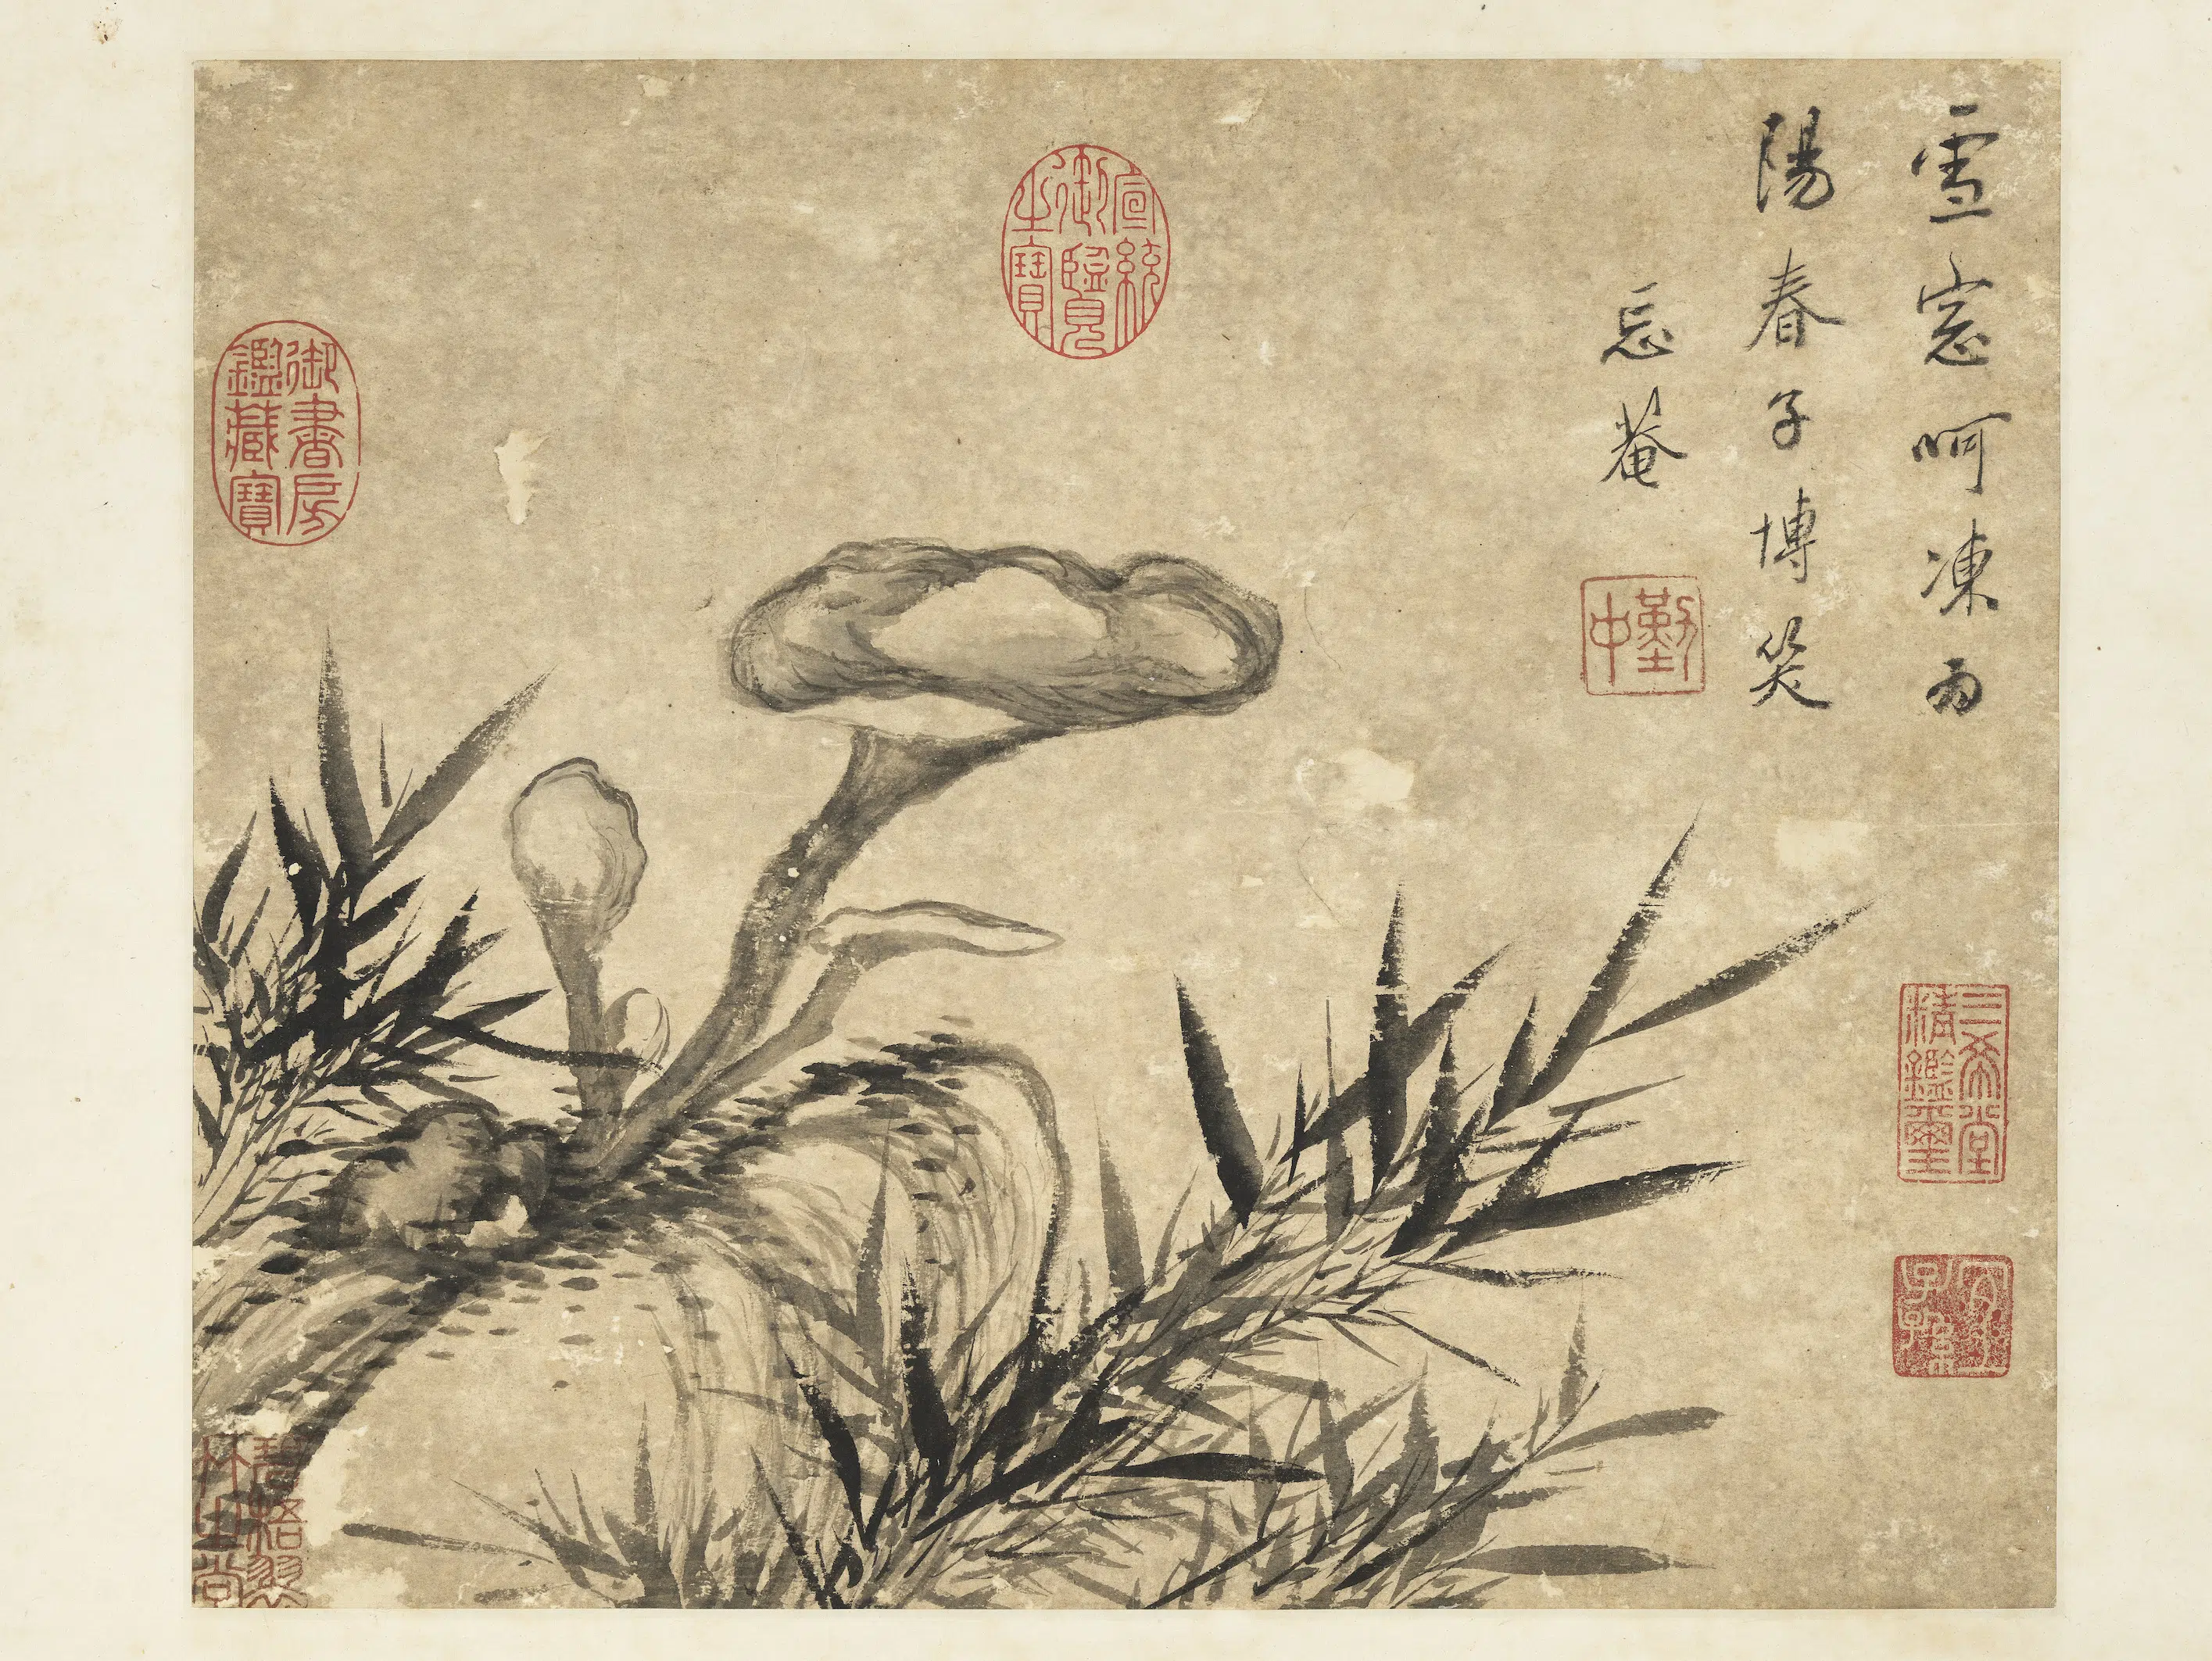 雪窓呵凍為
陽春子博笑
忘菴
勤中
三希堂
精鑑璽
宜
子孫
宣統
御覽
之寶
御書房
鑑藏寶